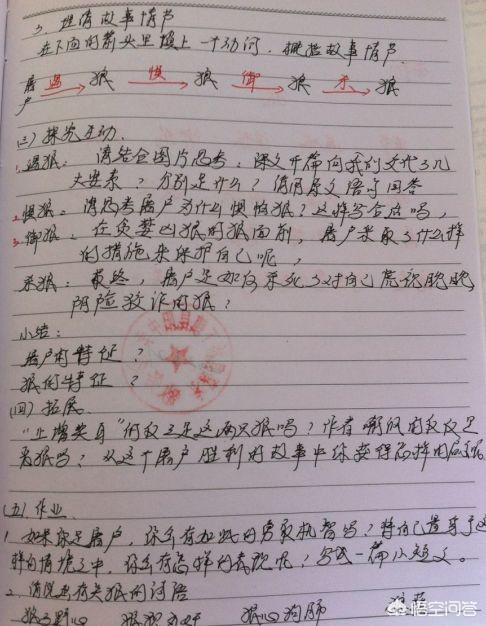 3. 理清故事情节
在下面的箭头里填上一个动词,概括故事情节
屠户 遇 狼 惧 狼 御 狼 杀 狼
(三)探究互动
1. 遇狼:请结合图片思考:课文开篇向我们交代了几
大要素?分别是什么?请用原文语言回答
2. 惧狼:请思考屠户为什么惧怕狼?这样写合适吗,
3. 御狼:在贪婪凶狠的狼面前,屠户采取了什么样
的措施来保护自己呢,
杀狼:最终,屠户是如何杀死了对自己虎视眈眈,
阴险狡诈的狼?
小结:
屠户的特征?
狼的特征?
(四)拓展
"止增笑耳"的仅仅是这两只狼吗?作者嘲讽的仅仅是
看狼吗?从这个屠户胜利的故事中你获得怎样的启示呢
(五)作业
1. 如果你是屠户,你会有如此的勇气机智吗?将自己置身于这
样的情境之中,你会有怎样的表现呢?写成一篇小短文。
2. 请说出有关狼的词语
狼子野心 狼狈为奸 狼心狗肺
悟空问答